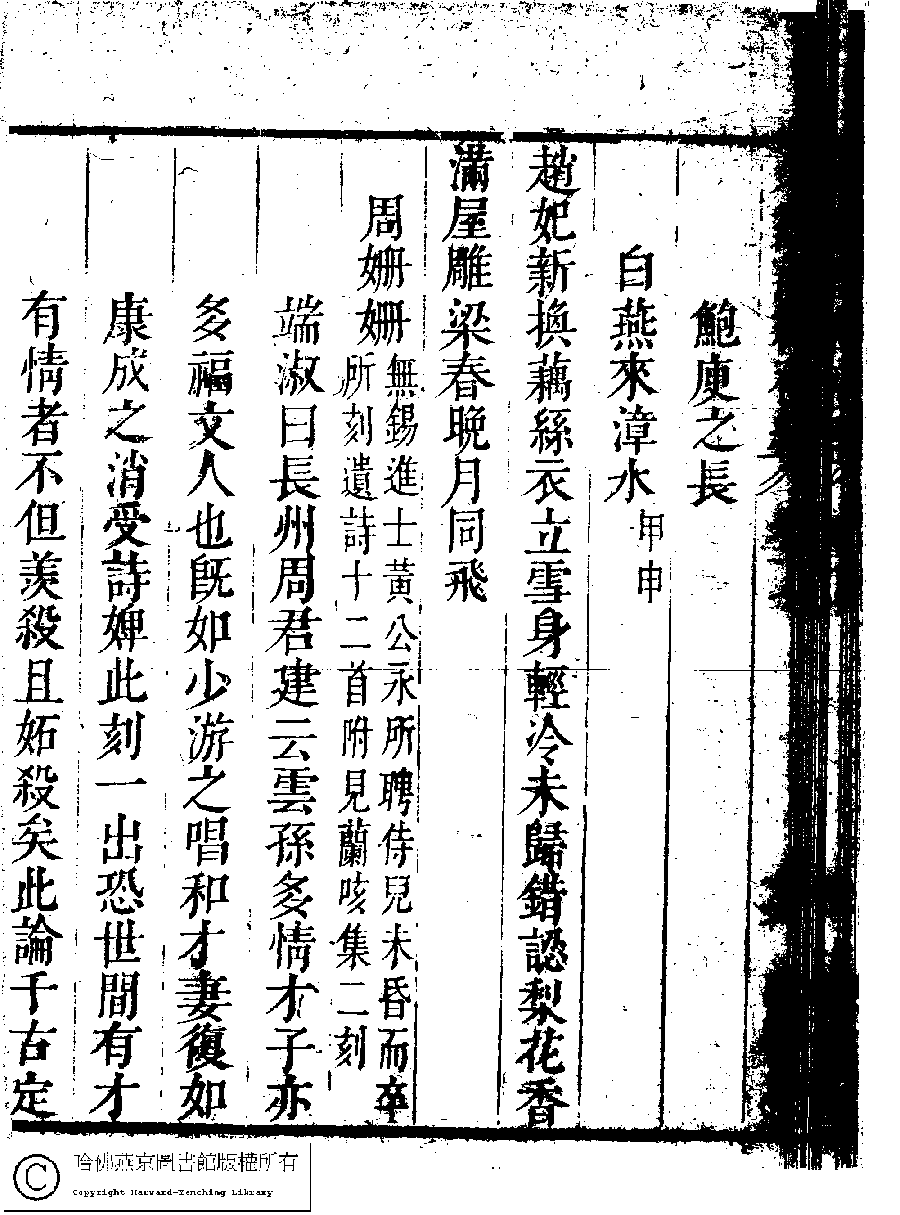 鮑庾之長
白燕來漳水甲申
趙妃新換藕絲衣立雪身輕冷未歸錯認梨花香
滿屋雕梁春晚月同飛
周姍姍
無錫進士黃公永所聘侍兒未昏而卒
所刻遺詩十二首附見蘭咳集二刻
端淑曰長州周君建云雲孫多情才子亦
多福文人也旣如少游之唱和才妻復如
康成之消受詩婢此刻一出恐世間有才
有情者不但羨殺且妬殺矣此論千古定
哈佛燕京圖書館版權所有
Copyright Harvard-Yenching Library